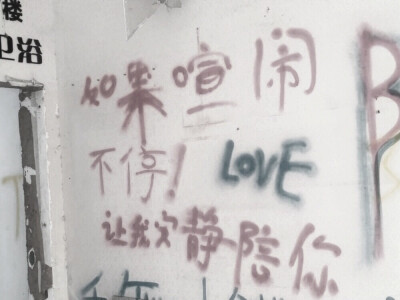 楼
卫浴
如果喧闹
不停! LOVE
让我安静陪你
B